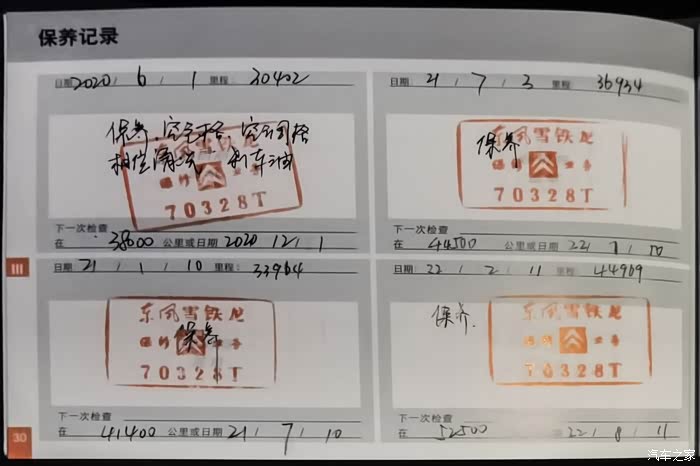 保养记录
日期: 2020 / 6 / 1 里程: 30402
保养、空气格、空调格
相位清洗 刹车油
东风雪铁龙
70328T
下一次检查
在 38000 公里或日期 2020 / 12 / 1
日期: 21 / 7 / 3 里程: 36934
保养
东风雪铁龙
70328T
下一次检查
在 44500 公里或日期 22 / 1 / 10
III
日期: 21 / 1 / 10 里程: 33964
东风雪铁龙
保养
70328T
下一次检查
在 41400 公里或日期 21 / 7 / 10
日期: 22 / 2 / 11 里程: 44969
保养.
东风雪铁龙
70328T
下一次检查
在 52500 22 / 8 / 11
30
汽车之家